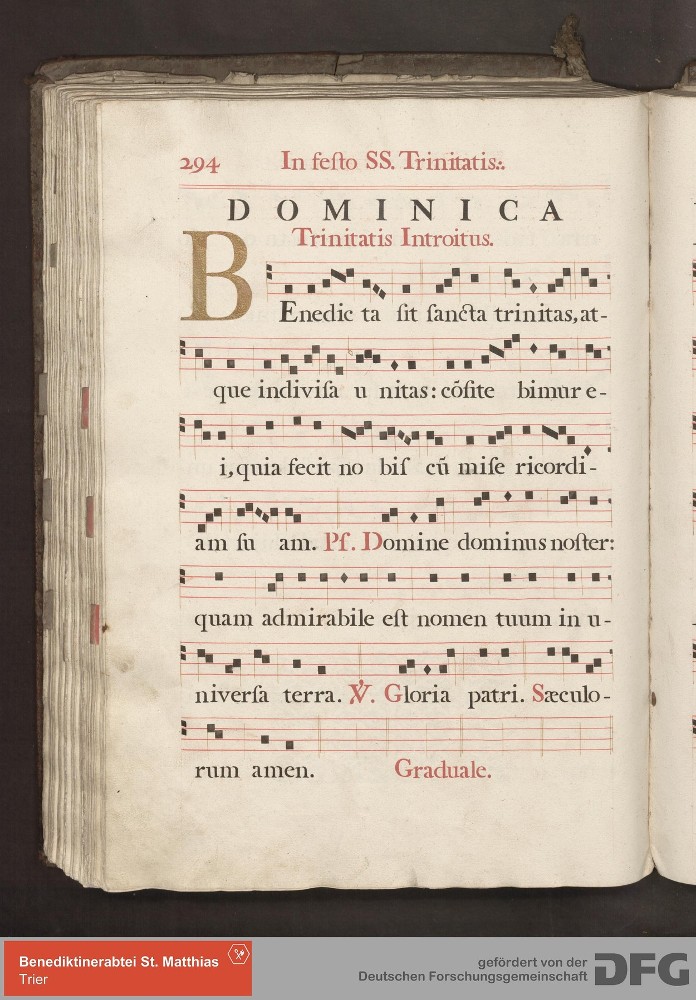 294 In festo SS. Trinitatis.
DOMINICA
Trinitatis Introitus.
BEnedic ta sit sancta trinitas, at-
que indivisa u nitas: cōfite bimur e-
i, quia fecit no bis cū mise ricordi-
am su am. Ps. Domine dominus noster:
quam admirabile est nomen tuum in u-
niversa terra. V. Gloria patri. Sæculo-
rum amen. Graduale.
Benediktinerabtei St. Matthias
Trier
gefördert von der
Deutschen Forschungsgemeinschaft DFG